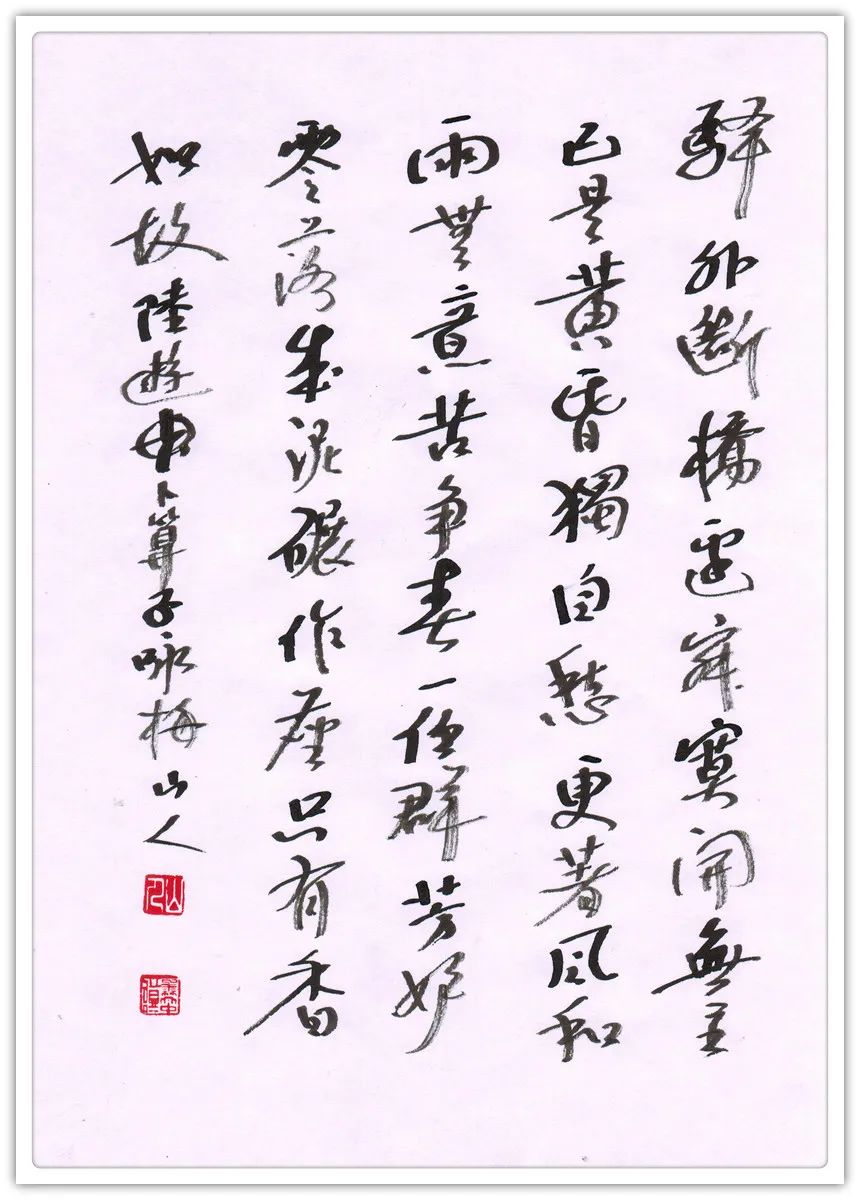 驿外斷橋邊寂寞開無主
已是黃昏獨自愁更著風和
雨無意苦爭春一任群芳妒
零落成泥碾作塵只有香
如故陸遊卜算子咏梅山人
山人